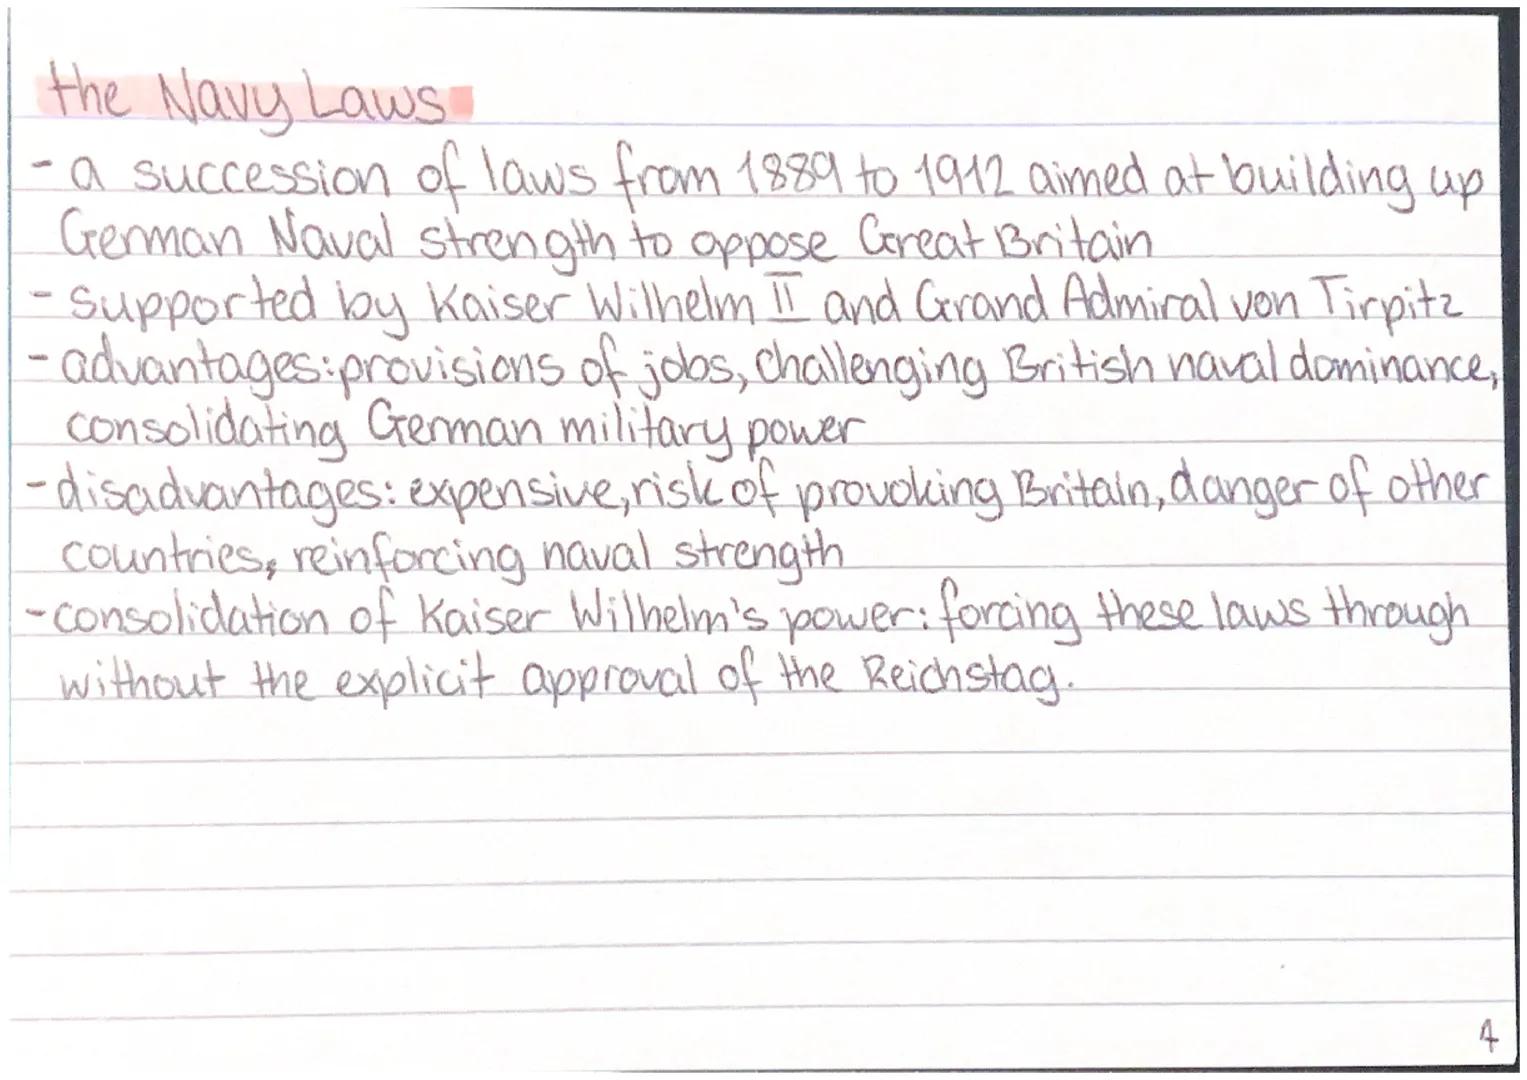 the Navy Laws
- a succession of laws from 1889 to 1912 aimed at building up
German Naval strength to oppose Great Britain
- supported by Kaiser Wilhelm II and Grand Admiral von Tirpitz
- advantages: provisions of jobs, challenging British naval dominance,
consolidating German military power
- disadvantages: expensive, risk of provoking Britain, danger of other
countries, reinforcing naval strength
- consolidation of Kaiser Wilhelm's power: forcing these laws through
without the explicit approval of the Reichstag.
4